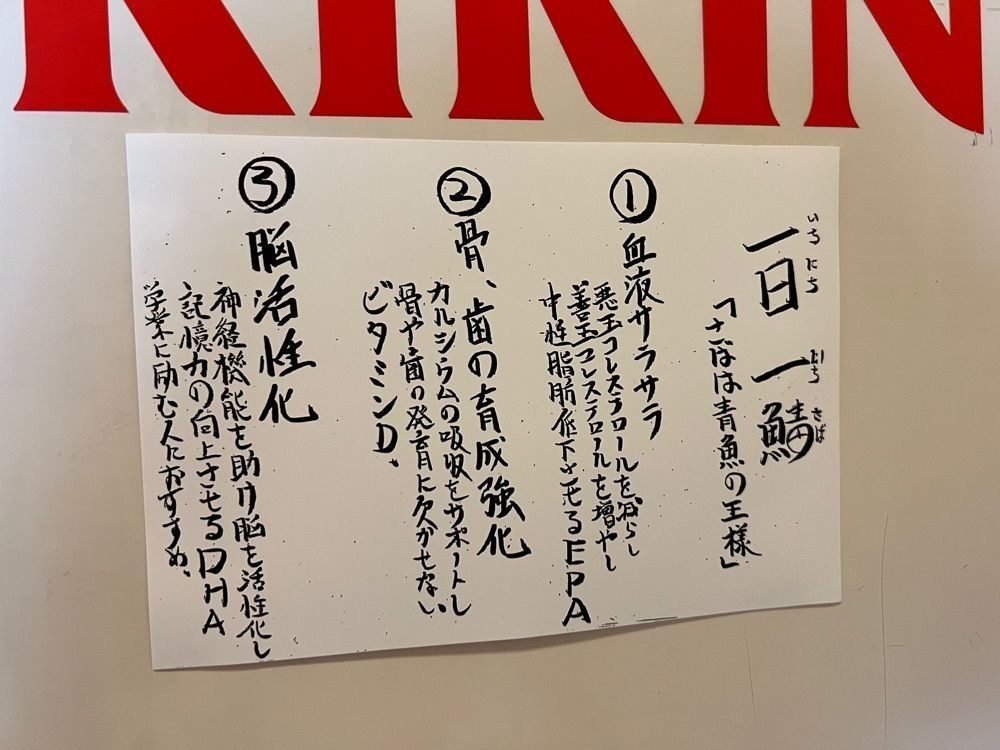 KIRIN
一日一鯖
いちにち いち さば
「さばは青魚の王様」
① 血液サラサラ
悪玉コレステロールを減らし
善玉コレステロールを増やし
中性脂肪低下させるEPA
② 骨、歯の育成強化
カルシウムの吸収をサポートし
骨や歯の発育に欠かせない
ビタミンD、
③ 脳活性化
神経機能を助け脳を活性化し
記憶力の向上させるDHA
学業に励む人におすすめ、